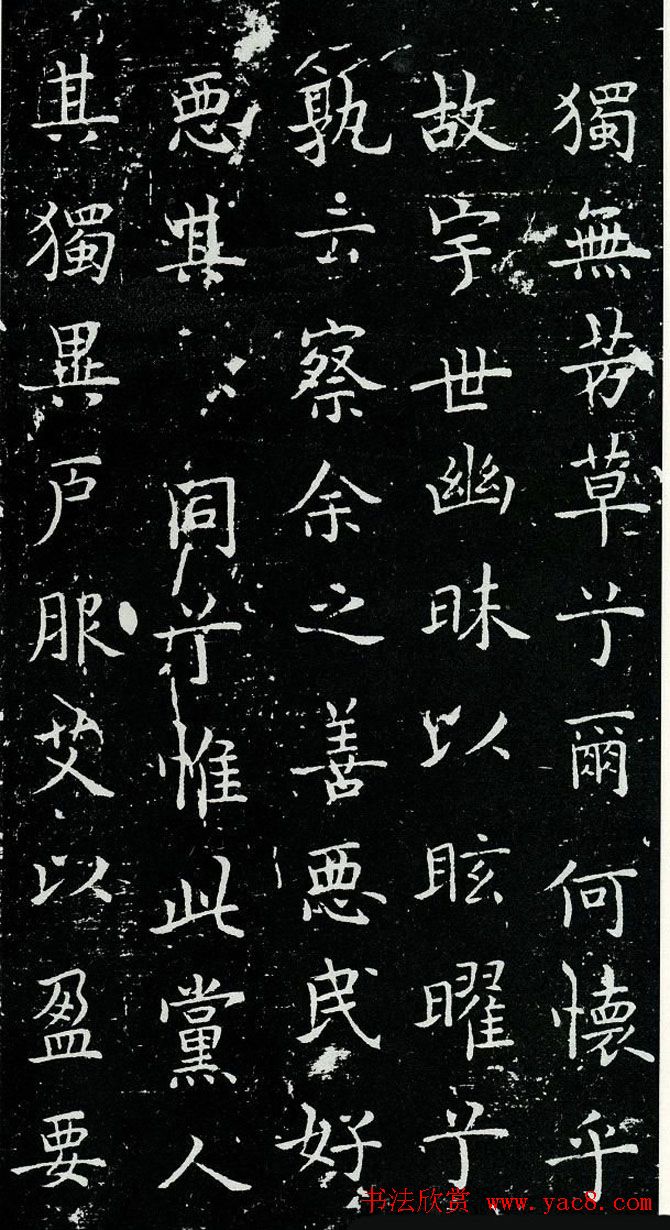 獨無芳草兮爾何懷乎
故宇世幽昧以眩曜兮
孰云察余之善悪民好
悪其同兮惟此黨人
其獨異户服艾以盈要
书法欣赏 www.yac8.com